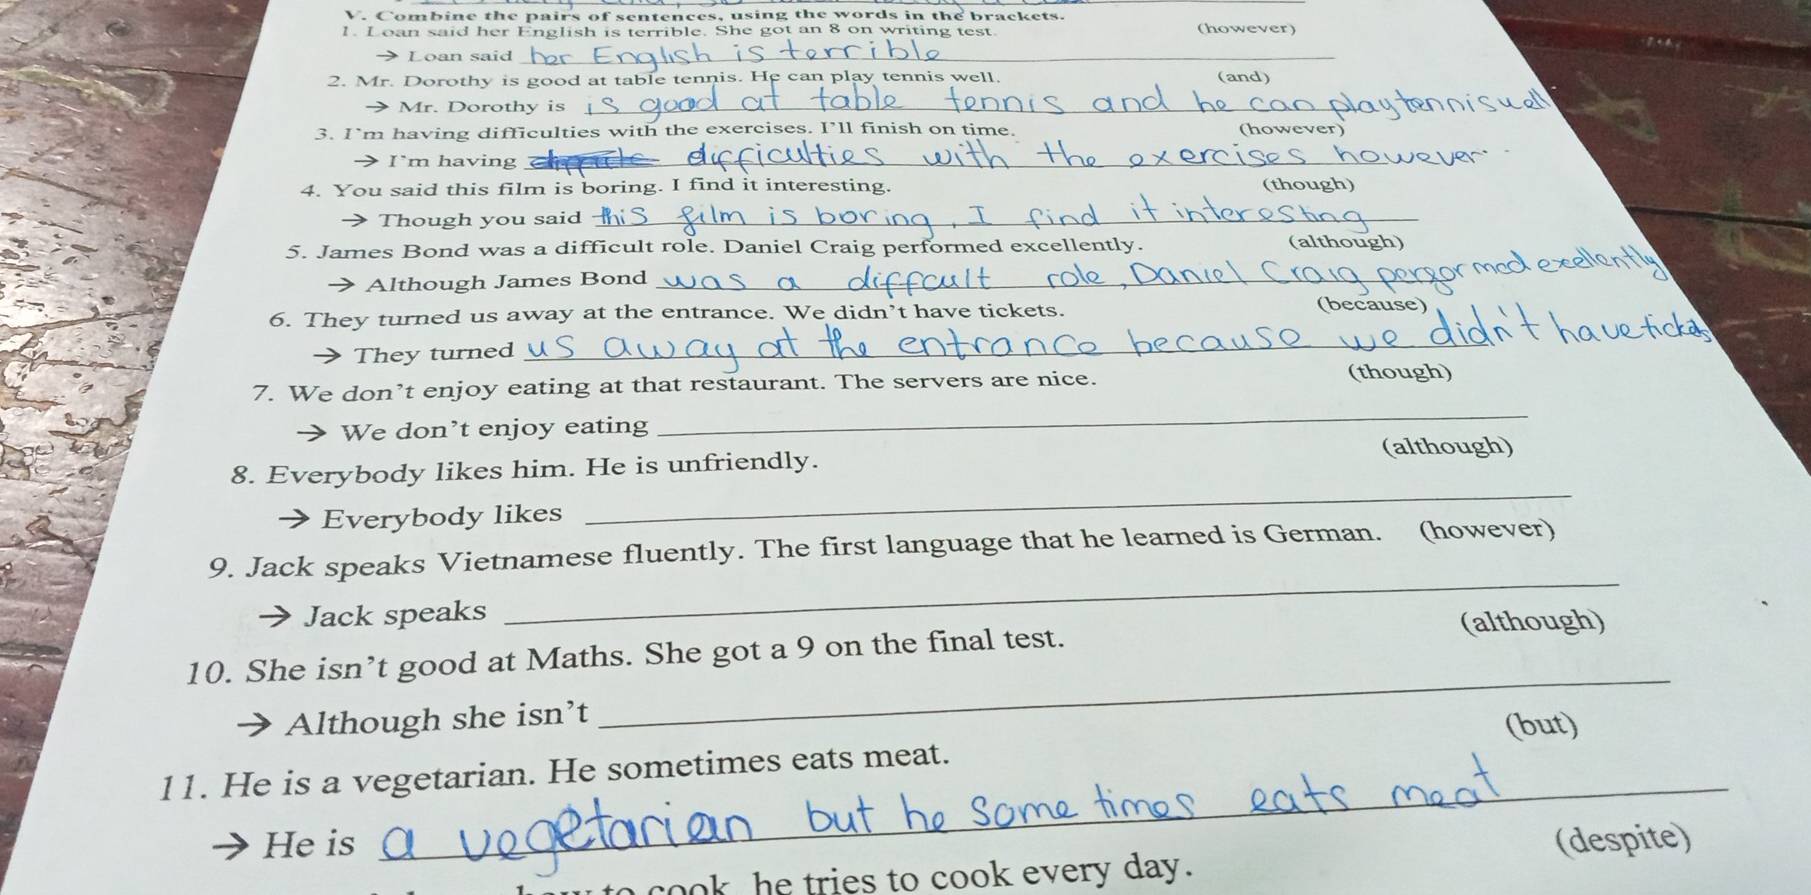 V. Combine the pairs of sentences, using the words in the brackets.
1. Loan said her English is terrible. She got an 8 on writing test. (however)
→ Loan said her English is terrible
2. Mr. Dorothy is good at table tennis. He can play tennis well. (and)
→ Mr. Dorothy is is good at table tennis and he can play tennis well
3. I'm having difficulties with the exercises. I'll finish on time. (however)
→ I'm having difficulties with the exercises however
4. You said this film is boring. I find it interesting. (though)
→ Though you said this film is boring, I find it interesting
5. James Bond was a difficult role. Daniel Craig performed excellently. (although)
→ Although James Bond was a diffcult role, Daniel Craig pergormed exellently
6. They turned us away at the entrance. We didn't have tickets. (because)
→ They turned us away at the entrance because we didn't have tickets
7. We don't enjoy eating at that restaurant. The servers are nice. (though)
→ We don't enjoy eating
8. Everybody likes him. He is unfriendly. (although)
→ Everybody likes
9. Jack speaks Vietnamese fluently. The first language that he learned is German. (however)
→ Jack speaks
10. She isn't good at Maths. She got a 9 on the final test. (although)
→ Although she isn't
11. He is a vegetarian. He sometimes eats meat. (but)
→ He is a vegetarian but he some times eats meat
to cook he tries to cook every day. (despite)